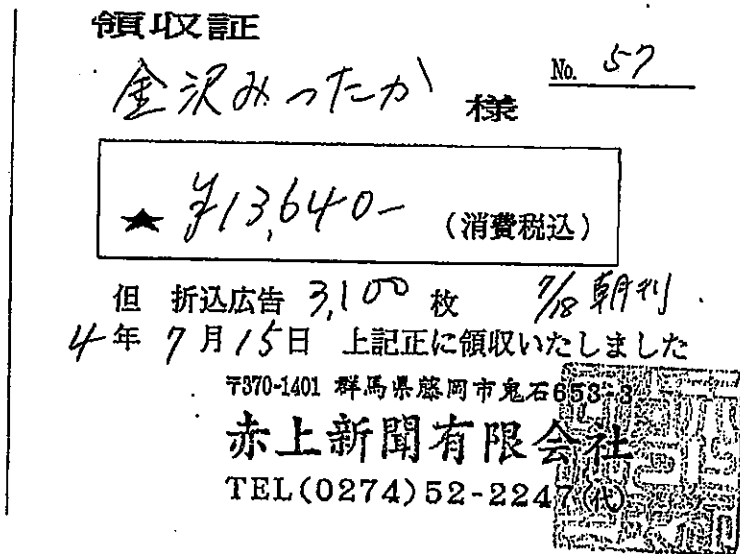 領収証
No. 57
金沢みつたか 様
★ ¥13,640- (消費税込)
但 折込広告 3,100 枚 7/18 朝刊
4年 7月15日 上記正に領収いたしました
〒370-1401 群馬県藤岡市鬼石653-3
赤上新聞有限会社
TEL(0274)52-2247(代)